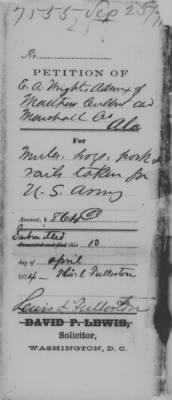 7555 Sep 25/7
No.
PETITION OF
E. A. Wright Admx of
Matthew decd
Marshall Co
Ala
For
Mules, hogs, pork &
rails taken for
U. S. Army
Amount, $ 864
Submitted
this 13
day of april
1874 Fullerton
Lewis & Fullerton
DAVID P. LEWIS,
Solicitor,
WASHINGTON, D. C.